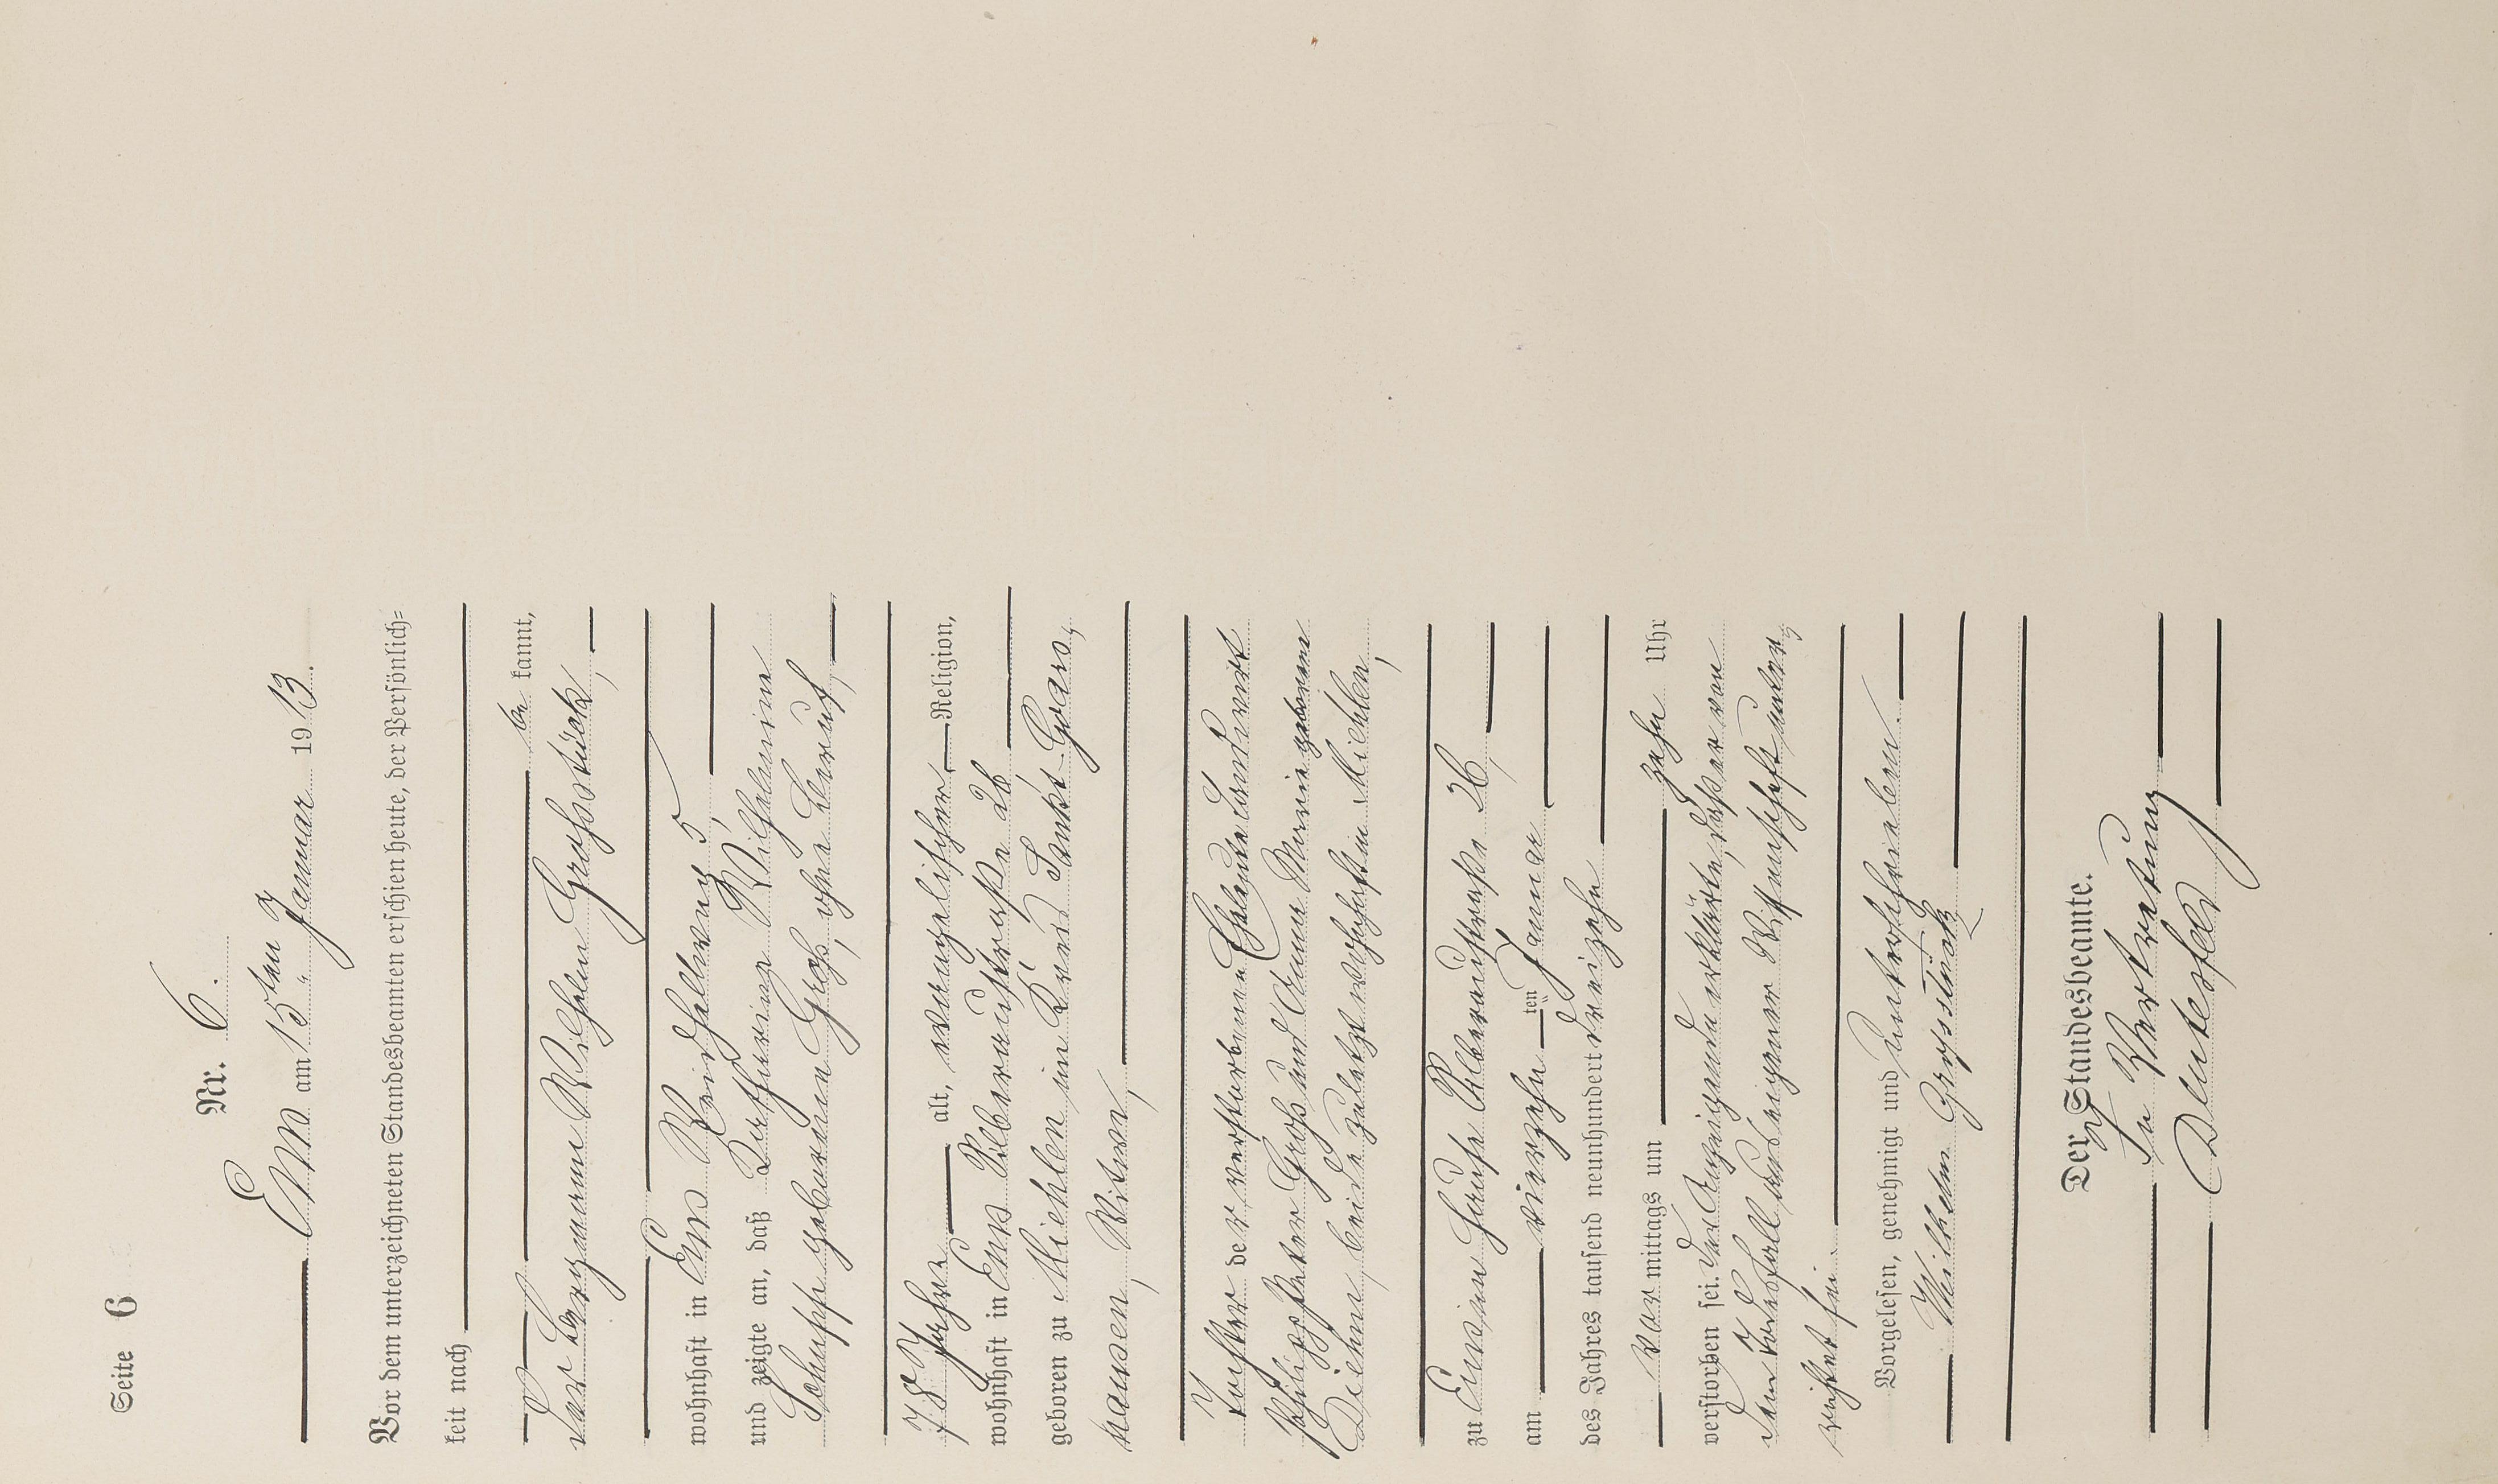 Seite 6
Nr. 6.
Ems am 15ten Januar 1913.
Vor dem unterzeichneten Standesbeamten erschien heute, der Persönlich=
keit nach
be kannt,
der Bergmann Wilhelm Großstück,
wohnhaft in Ems Weidhellweg 5,
und zeigte an, daß Katharine Wilhelmine
Schupp geborene Groß, ohne Beruf,
78 Jahre alt, evangelischer Religion,
wohnhaft in Ems Silberaustraße 26
geboren zu Miehlen im Kreis Sankt Goars,
hausen, Witwe,
Tochter der verstorbenen Eheleute Landwirt
Philipp Peter Groß und Anna Maria geborene
Diehm, beide zuletzt wohnhaft in Miehlen,
zu Ems im Hause Silberaustraße 26,
am vierzehnten Januar
des Jahres tausend neunhundert dreizehn
vormittags um zehn Uhr
verstorben sei. Der Anzeigende erklärte, daß er von
dem Todesfall aus eigener Wissenschaft unter,
richtet sei.
Vorgelesen, genehmigt und unterschrieben.
Wilhelm Großstück
Der Standesbeamte.
In Vertretung